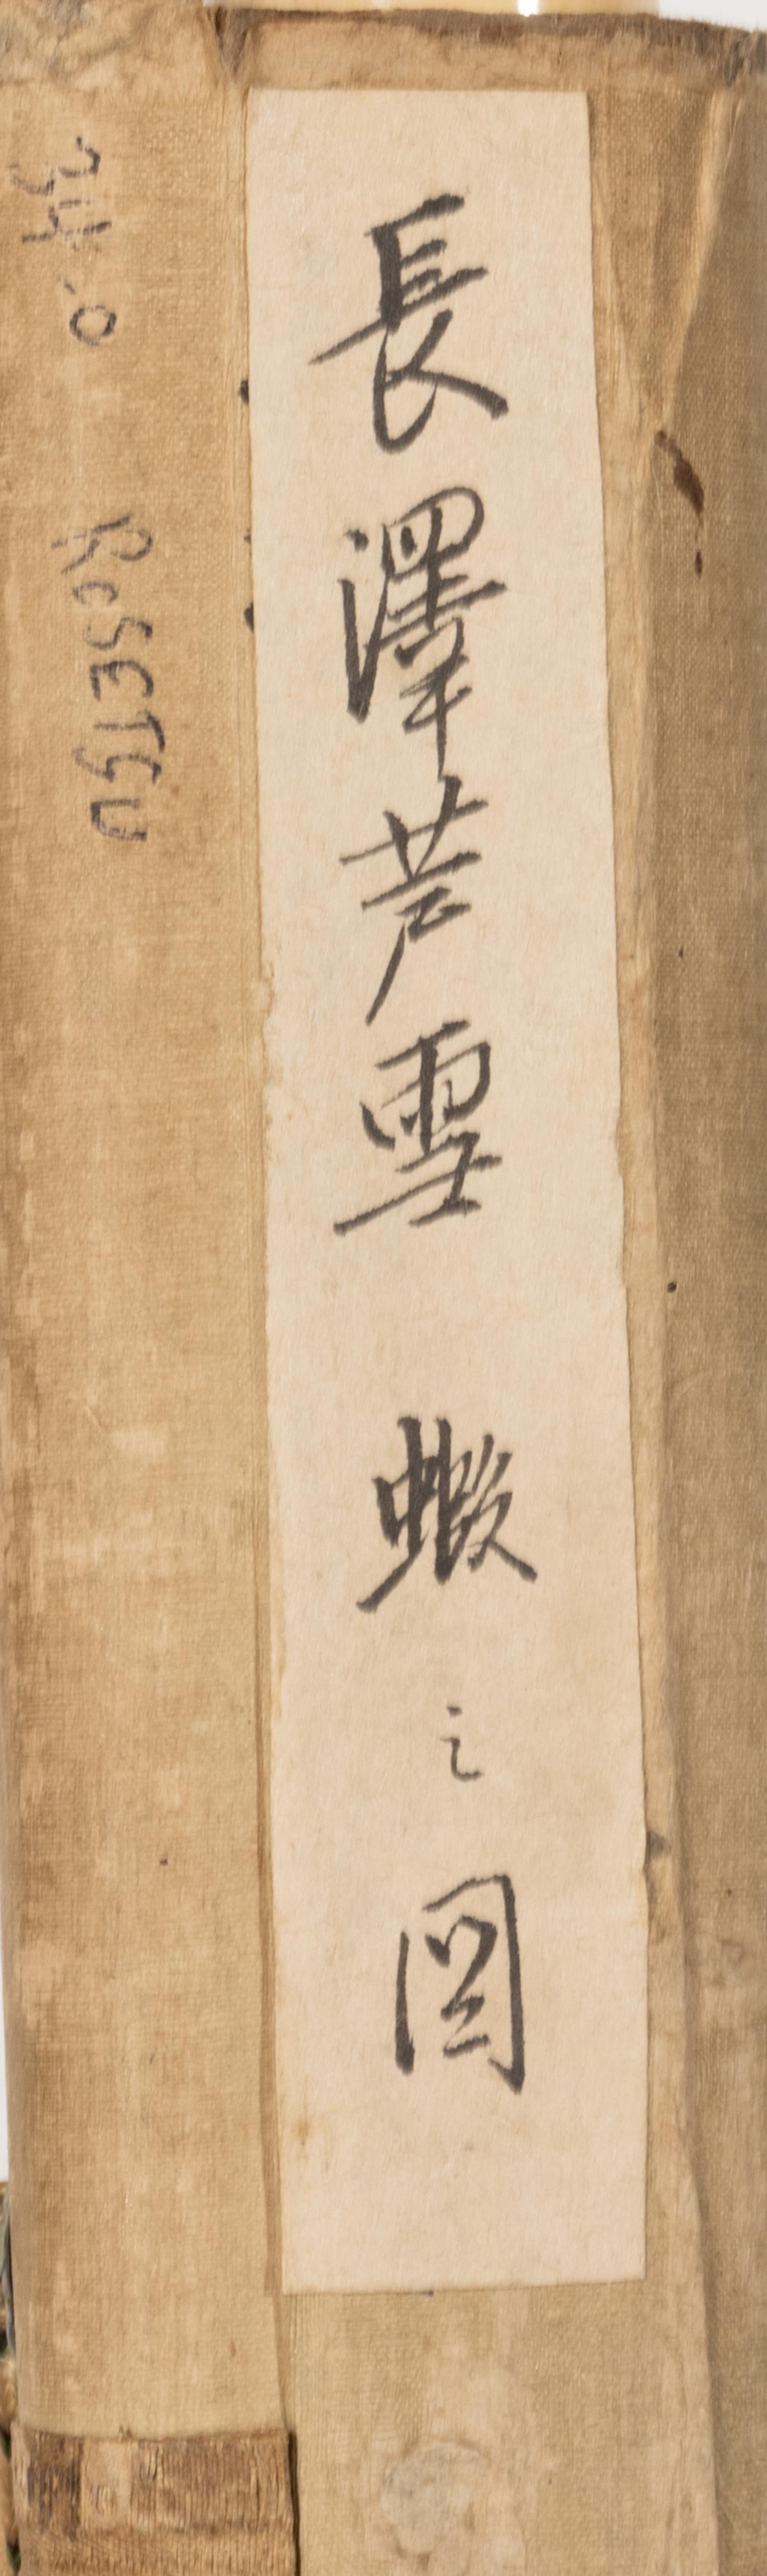 長澤芦雪　蝦之図
34.0 ROSETSU